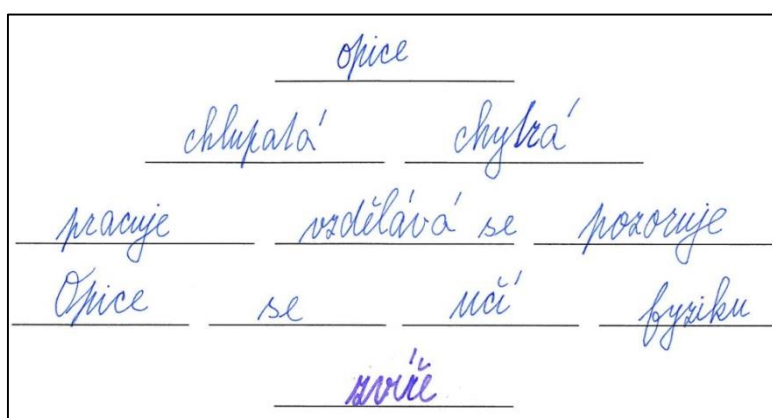 opice
chlupatá chytrá
pracuje vzdělává se pozoruje
Opice se učí fyziku
zvíře